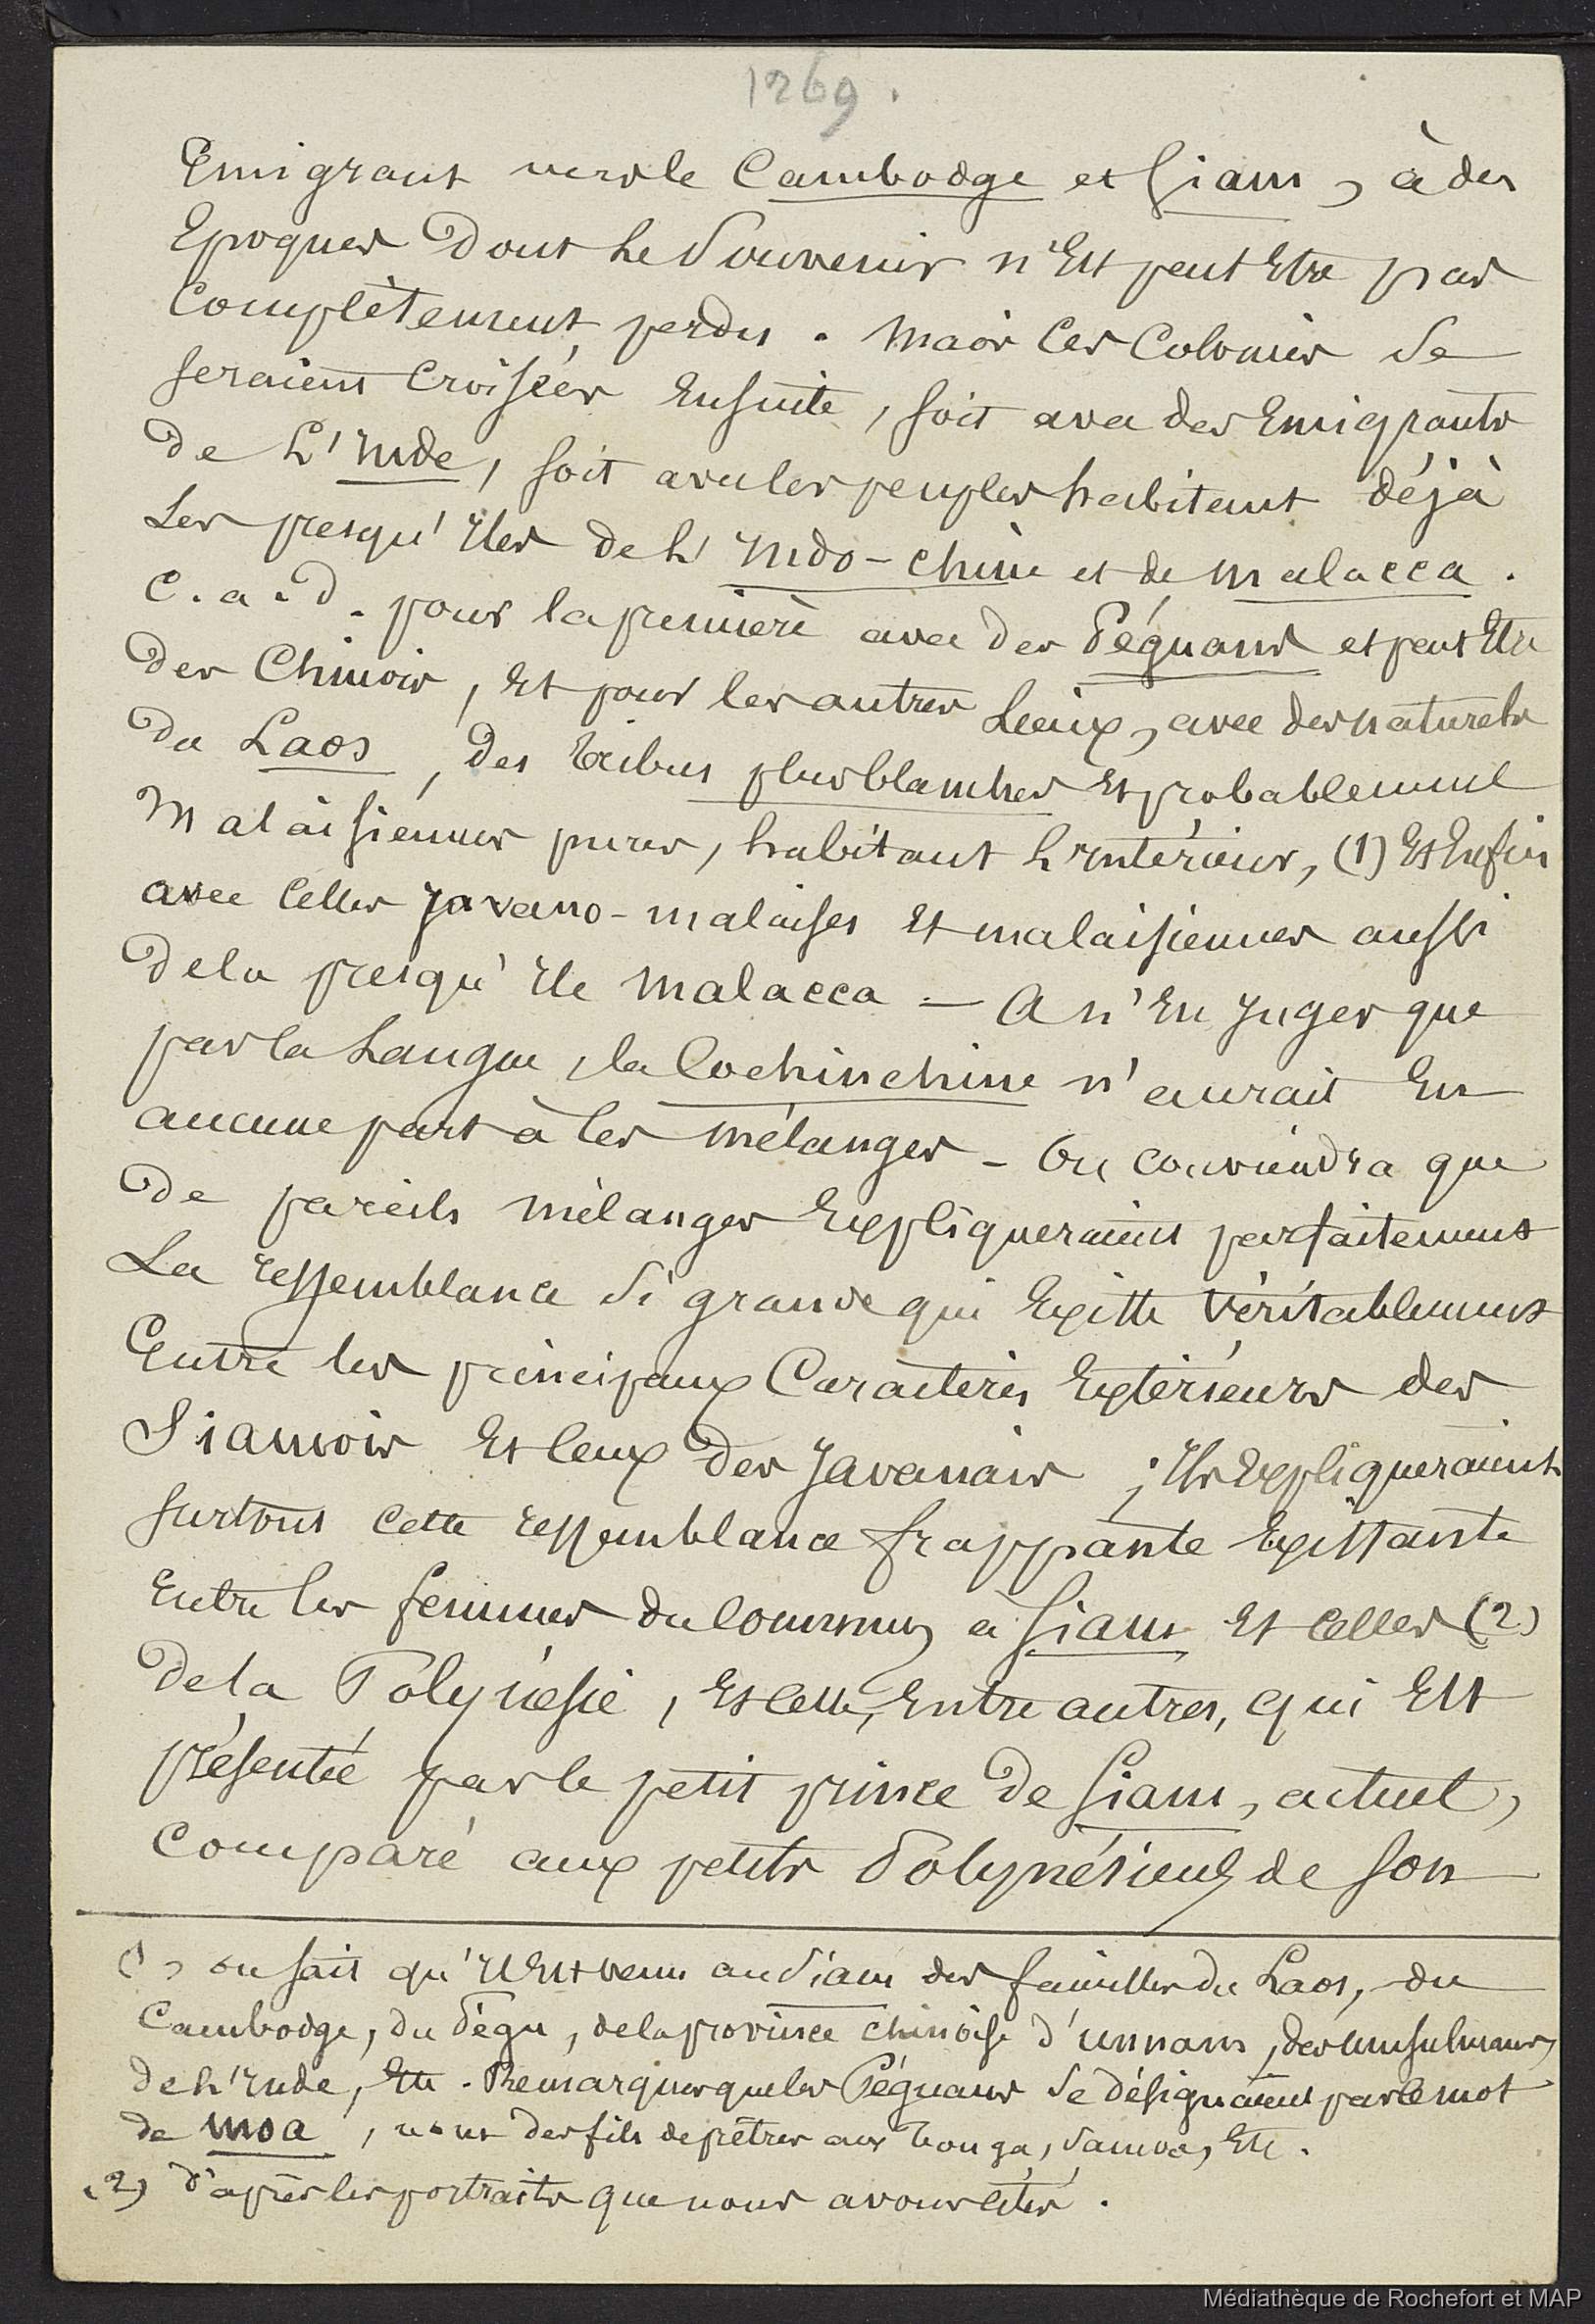 1269.
Emigrant vers le Cambodge et Siam, à des
Epoques dont le Souvenir n'Est peut Etre pas
Complètement perdu. Mais ces Colonies se
seraient Croisées Ensuite, soit avec des Emigrants
de L'Inde, soit avec les peuples habitant déjà
Les presqu'Iles de L'Indo-chine et de Malacca.
C.a.d. pour la première avec des Péguans et peut Etre
des Chinois, Et pour les autres Lieux, avec des naturels
du Laos, des tribus plus blanches Et probablement
Malaisiennes pures, habitant L'intérieur, (1) Et Enfin
avec Celles Javano-malaises Et malaisiennes aussi
de la presqu'Ile Malacca — A n'En Juger que
par la Langue, la Cochinchine n'aurait Eu
aucune part à Ces mélanges - On conviendra que
de pareils mélanges Expliqueraient parfaitement
La ressemblance Si grande qui Existe véritablement
Entre les principaux Caractères Extérieurs des
Siamois Et Ceux des Javanais ; Ils Expliqueraient
surtout Cette ressemblance frappante Existante
Entre les femmes du Commun à Siam Et Celles (2)
de la Polynésie, Et Celle, Entre autres, qui Est
présentée par le petit prince de Siam, actuel,
Comparé aux petits Polynésiens de son
(1) on sait qu'il Est venu au Siam des familles du Laos, du
Cambodge, du Pégu, de la province chinoise d'unnam, des musulmans
de L'Inde, Etc. Remarquer que les Péguans se désignaient par le mot
de moa, nom des fils de prêtres aux Tonga, Samoa, Etc.
(2) d'après les portraits que nous avons cités.
Médiathèque de Rochefort et MAP